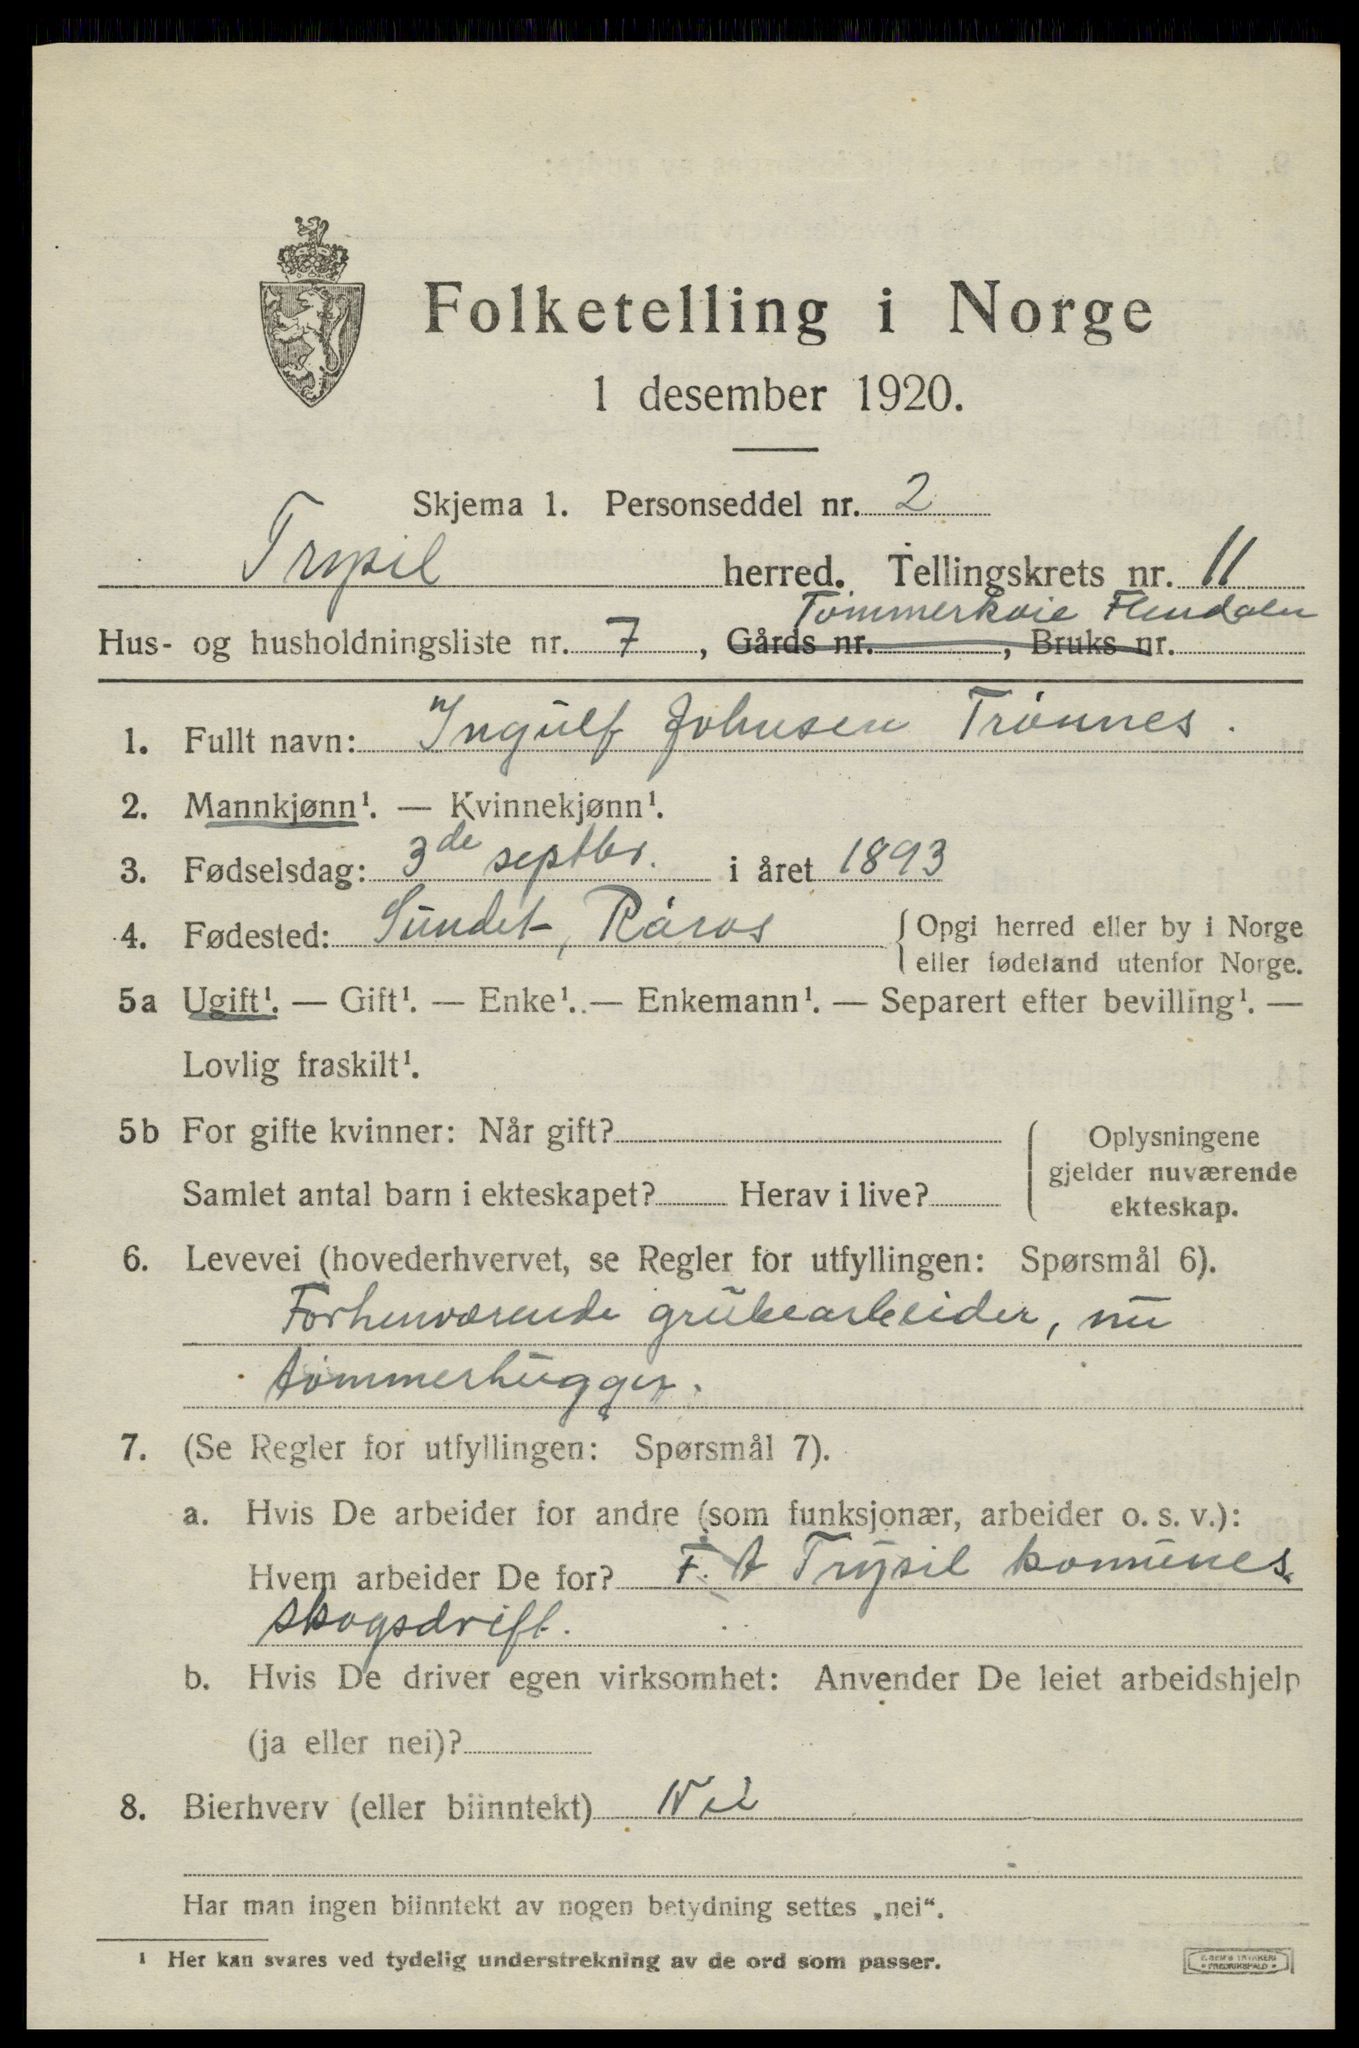 Folketelling i Norge
1 desember 1920.
Skjema 1. Personseddel nr. 2
Trysil herred. Tellingskrets nr. 11
Tømmerkoie Flendalen
Hus- og husholdningsliste nr. 7, Gårds nr. , Bruks nr.
1. Fullt navn: Ingulf Johnsen Trønnes.
2. Mannkjønn¹. — Kvinnekjønn¹.
3. Fødselsdag: 3de septbr. i året 1893
4. Fødested: Sundet, Røros { Opgi herred eller by i Norge
eller fødeland utenfor Norge.
5a Ugift¹. — Gift¹. — Enke¹. — Enkemann¹. — Separert efter bevilling¹. —
Lovlig fraskilt¹.
5b For gifte kvinner: Når gift? { Oplysningene
gjelder nuværende
Samlet antal barn i ekteskapet? Herav i live? ekteskap.
6. Levevei (hovederhvervet, se Regler for utfyllingen: Spørsmål 6).
Forhenværende grubearbeider, nu
tømmerhugger.
7. (Se Regler for utfyllingen: Spørsmål 7).
a. Hvis De arbeider for andre (som funksjonær, arbeider o. s. v.):
Hvem arbeider De for? F. A Trysil komunes
skogsdrift.
b. Hvis De driver egen virksomhet: Anvender De leiet arbeidshjelp
(ja eller nei)?
8. Bierhverv (eller biinntekt) Nei
Har man ingen biinntekt av nogen betydning settes „nei“.
¹ Her kan svares ved tydelig understrekning av de ord som passer.